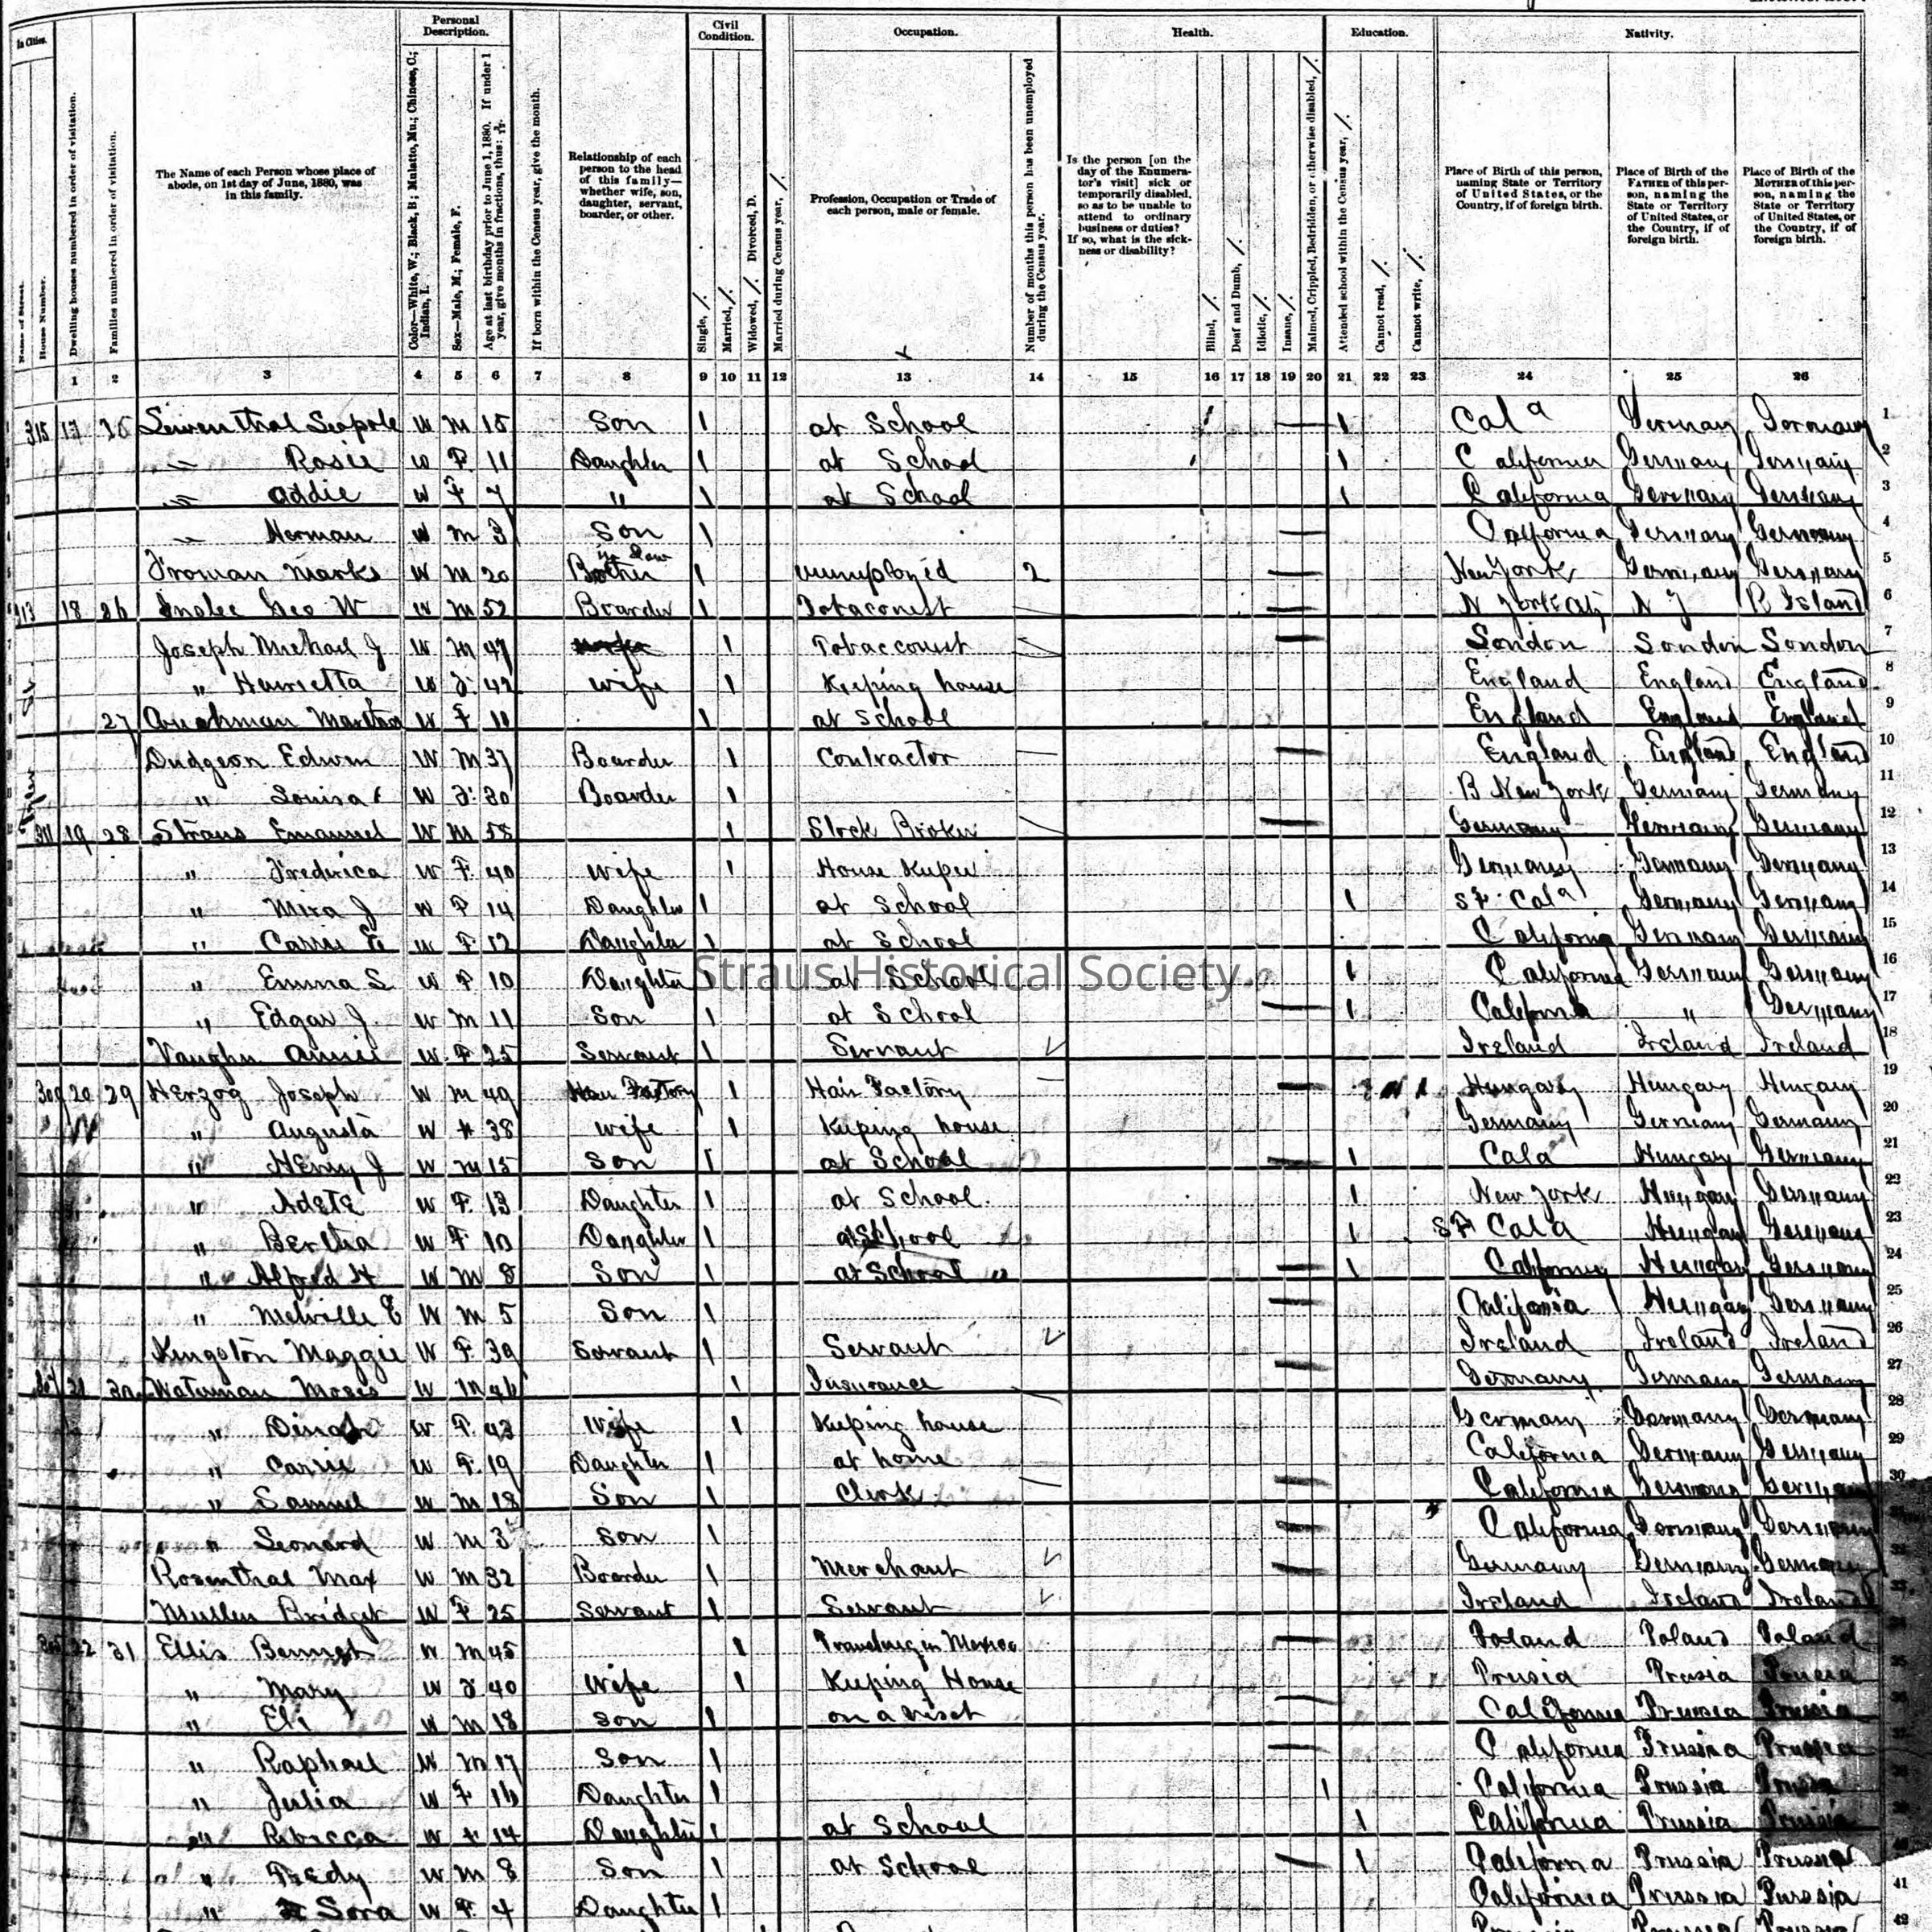 In Cities.
Name of Street.
House Number.
Dwelling houses numbered in order of visitation.
Families numbered in order of visitation.
The Name of each Person whose place of abode, on 1st day of June, 1880, was in this family.
Personal Description.
Color—White, W.; Black, B; Mulatto, Mu.; Chinese, C.; Indian, I.
Sex—Male, M.; Female, F.
Age at last birthday prior to June 1, 1880. If under 1 year, give months in fractions, thus: 3/12.
If born within the Census year, give the month.
Relationship of each person to the head of this family—whether wife, son, daughter, servant, boarder, or other.
Civil Condition.
Single, /.
Married, /.
Widowed, /. Divorced, D.
Married during Census year, /.
Occupation.
Profession, Occupation or Trade of each person, male or female.
Number of months this person has been unemployed during the Census year.
Health.
Is the person [on the day of the Enumerator's visit] sick or temporarily disabled, so as to be unable to attend to ordinary business or duties? If so, what is the sickness or disability?
Blind, /.
Deaf and Dumb, /.
Idiotic, /.
Insane, /.
Maimed, Crippled, Bedridden, or otherwise disabled, /.
Education.
Attended school within the Census year, /.
Cannot read, /.
Cannot write, /.
Nativity.
Place of Birth of this person, naming State or Territory of United States, or the Country, if of foreign birth.
Place of Birth of the FATHER of this person, naming the State or Territory of United States, or the Country, if of foreign birth.
Place of Birth of the MOTHER of this person, naming the State or Territory of United States, or the Country, if of foreign birth.
1 2 3 4 5 6 7 8 9 10 11 12 13 14 15 16 17 18 19 20 21 22 23 24 25 26
315 17 W M 15 Son 1 at School 1 Cala Germany Germany 1
" Rosie W F 11 Daughter 1 at School 1 California Germany Germany 2
" Addie W F 7 " 1 at School 1 California Germany Germany 3
" Herman W M 3 Son 1 California Germany Germany 4
Froman Marks W M 20 Brother in Law 1 unemployed 2 New York Germany Germany 5
313 18 26 Geo W W M 52 Boarder 1 Tobaconest N York City N J R Island 6
Joseph Michael J W M 47 1 Tobacconist London London London 7
" Henrietta W F 42 wife 1 Keeping house England England England 8
27 W F 1 at School England England England 9
Dudgeon Edwin W M 37 Boarder 1 Contractor England England England 10
" Louisa W F 30 Boarder 1 New York Germany Germany 11
311 19 28 Straus Emanuel W M 58 1 Stock Broker Germany Germany Germany 12
" Frederica W F 40 wife 1 House Keeper Germany Germany Germany 13
" Mira J W F 14 Daughter 1 at School 1 S F Cala Germany Germany 14
" Carrie E W F 12 Daughter 1 at School California Germany Germany 15
" Emma S W F 10 Daughter 1 at School 1 California Germany Germany 16
" Edgar J. W M 11 Son 1 at School 1 California " Germany 17
Vaughn Annie W F 25 Servant 1 Servant Ireland Ireland Ireland 18
309 20 29 Herzog Joseph W M 49 Hair Factory 1 Hair Factory Hungary Hungary Hungary 19
" Augusta W F 38 wife 1 Keeping house Germany Germany Germany 20
" Henry J W M 15 Son 1 at School 1 Cala Hungary Germany 21
" Adele W F 13 Daughter 1 at School 1 New York Hungary Germany 22
" Bertha W F 10 Daughter 1 at School 1 S F Cala Hungary Germany 23
" Alfred H W M 8 Son 1 at School 1 California Hungary Germany 24
" Melville E W M 5 Son 1 California Hungary Germany 25
Kingston Maggie W F 39 Servant 1 Servant Ireland Ireland Ireland 26
21 30 Waterman Moses W M 46 1 Insurance Germany Germany Germany 27
" Dinah W F 43 Wife 1 Keeping house Germany Germany Germany 28
" Carrie W F 19 Daughter 1 at home California Germany Germany 29
" Samuel W M 18 Son 1 Clerk California Germany Germany 30
" Leonard W M 3 Son 1 California Germany Germany
Rosenthal Max W M 32 Boarder 1 Merchant Germany Germany Germany
Mullen Bridget W F 25 Servant 1 Servant Ireland Ireland Ireland
305 22 31 Ellis W M 45 1 Traveling in Mexico Poland Poland Poland
" Mary W F 40 Wife 1 Keeping House Prusia Prusia Prusia
" Eli W M 18 Son 1 on a visit California Prussia Prussia
" Raphael W M 17 Son 1 California Prussia Prussia
" Julia W F 16 Daughter 1 1 California Prussia Prussia
" Rebecca W F 14 Daughter 1 at School 1 California Prussia Prussia
" W M 8 Son 1 at School 1 California Prussia Prussia
" Sora W F 4 Daughter 1 California Prussia Prussia 41
Straus Historical Society